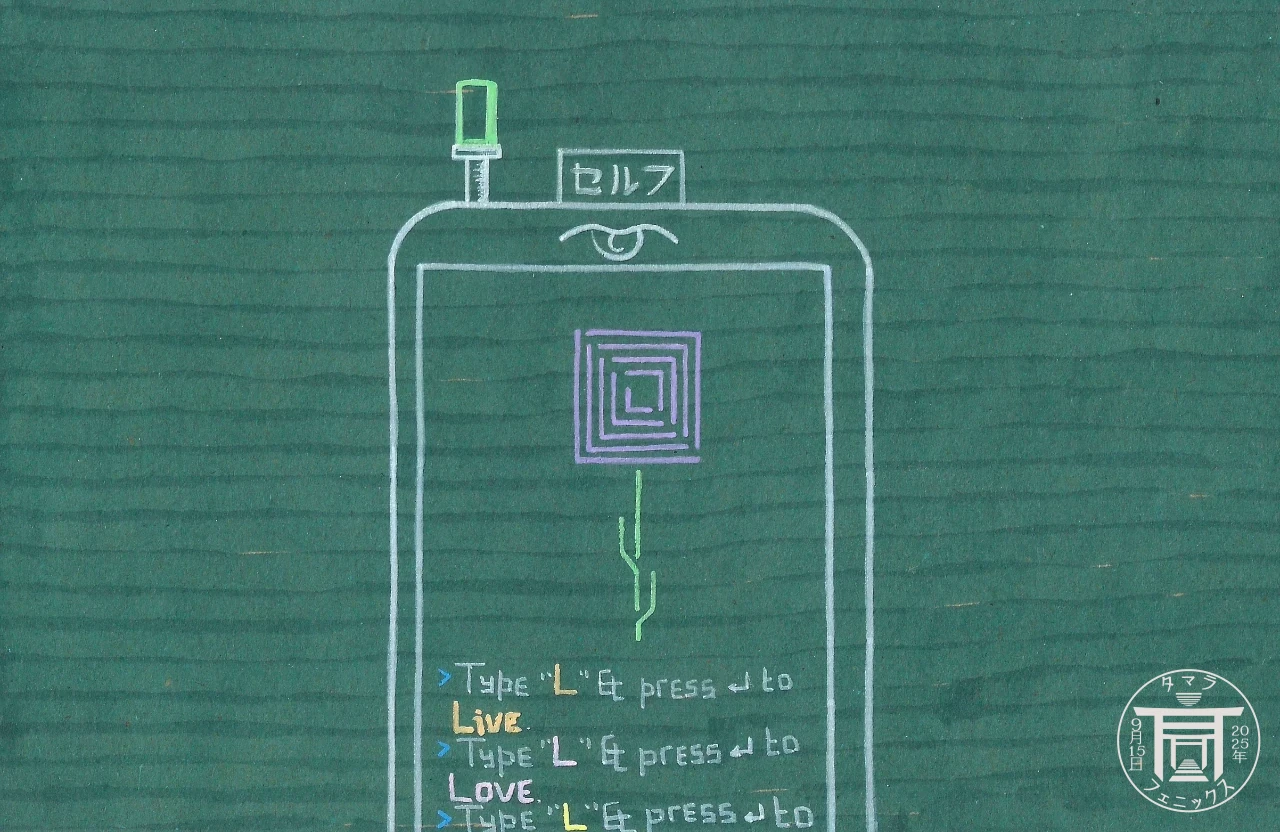 セルフ
> Type "L" & press ↵ to
Live.
> Type "L" & press ↵ to
Love.
> Type "L" & press ↵ to
タマラ
9月15日
2025年
フェニックス